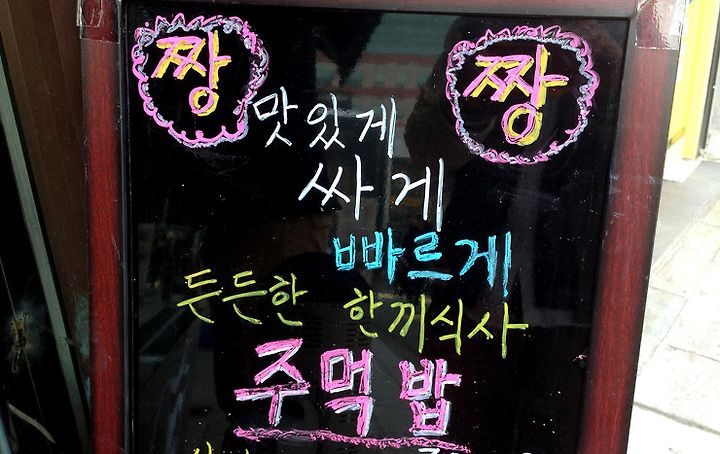 짱 짱
맛있게
싸게
빠르게
든든한 한끼식사
주먹밥